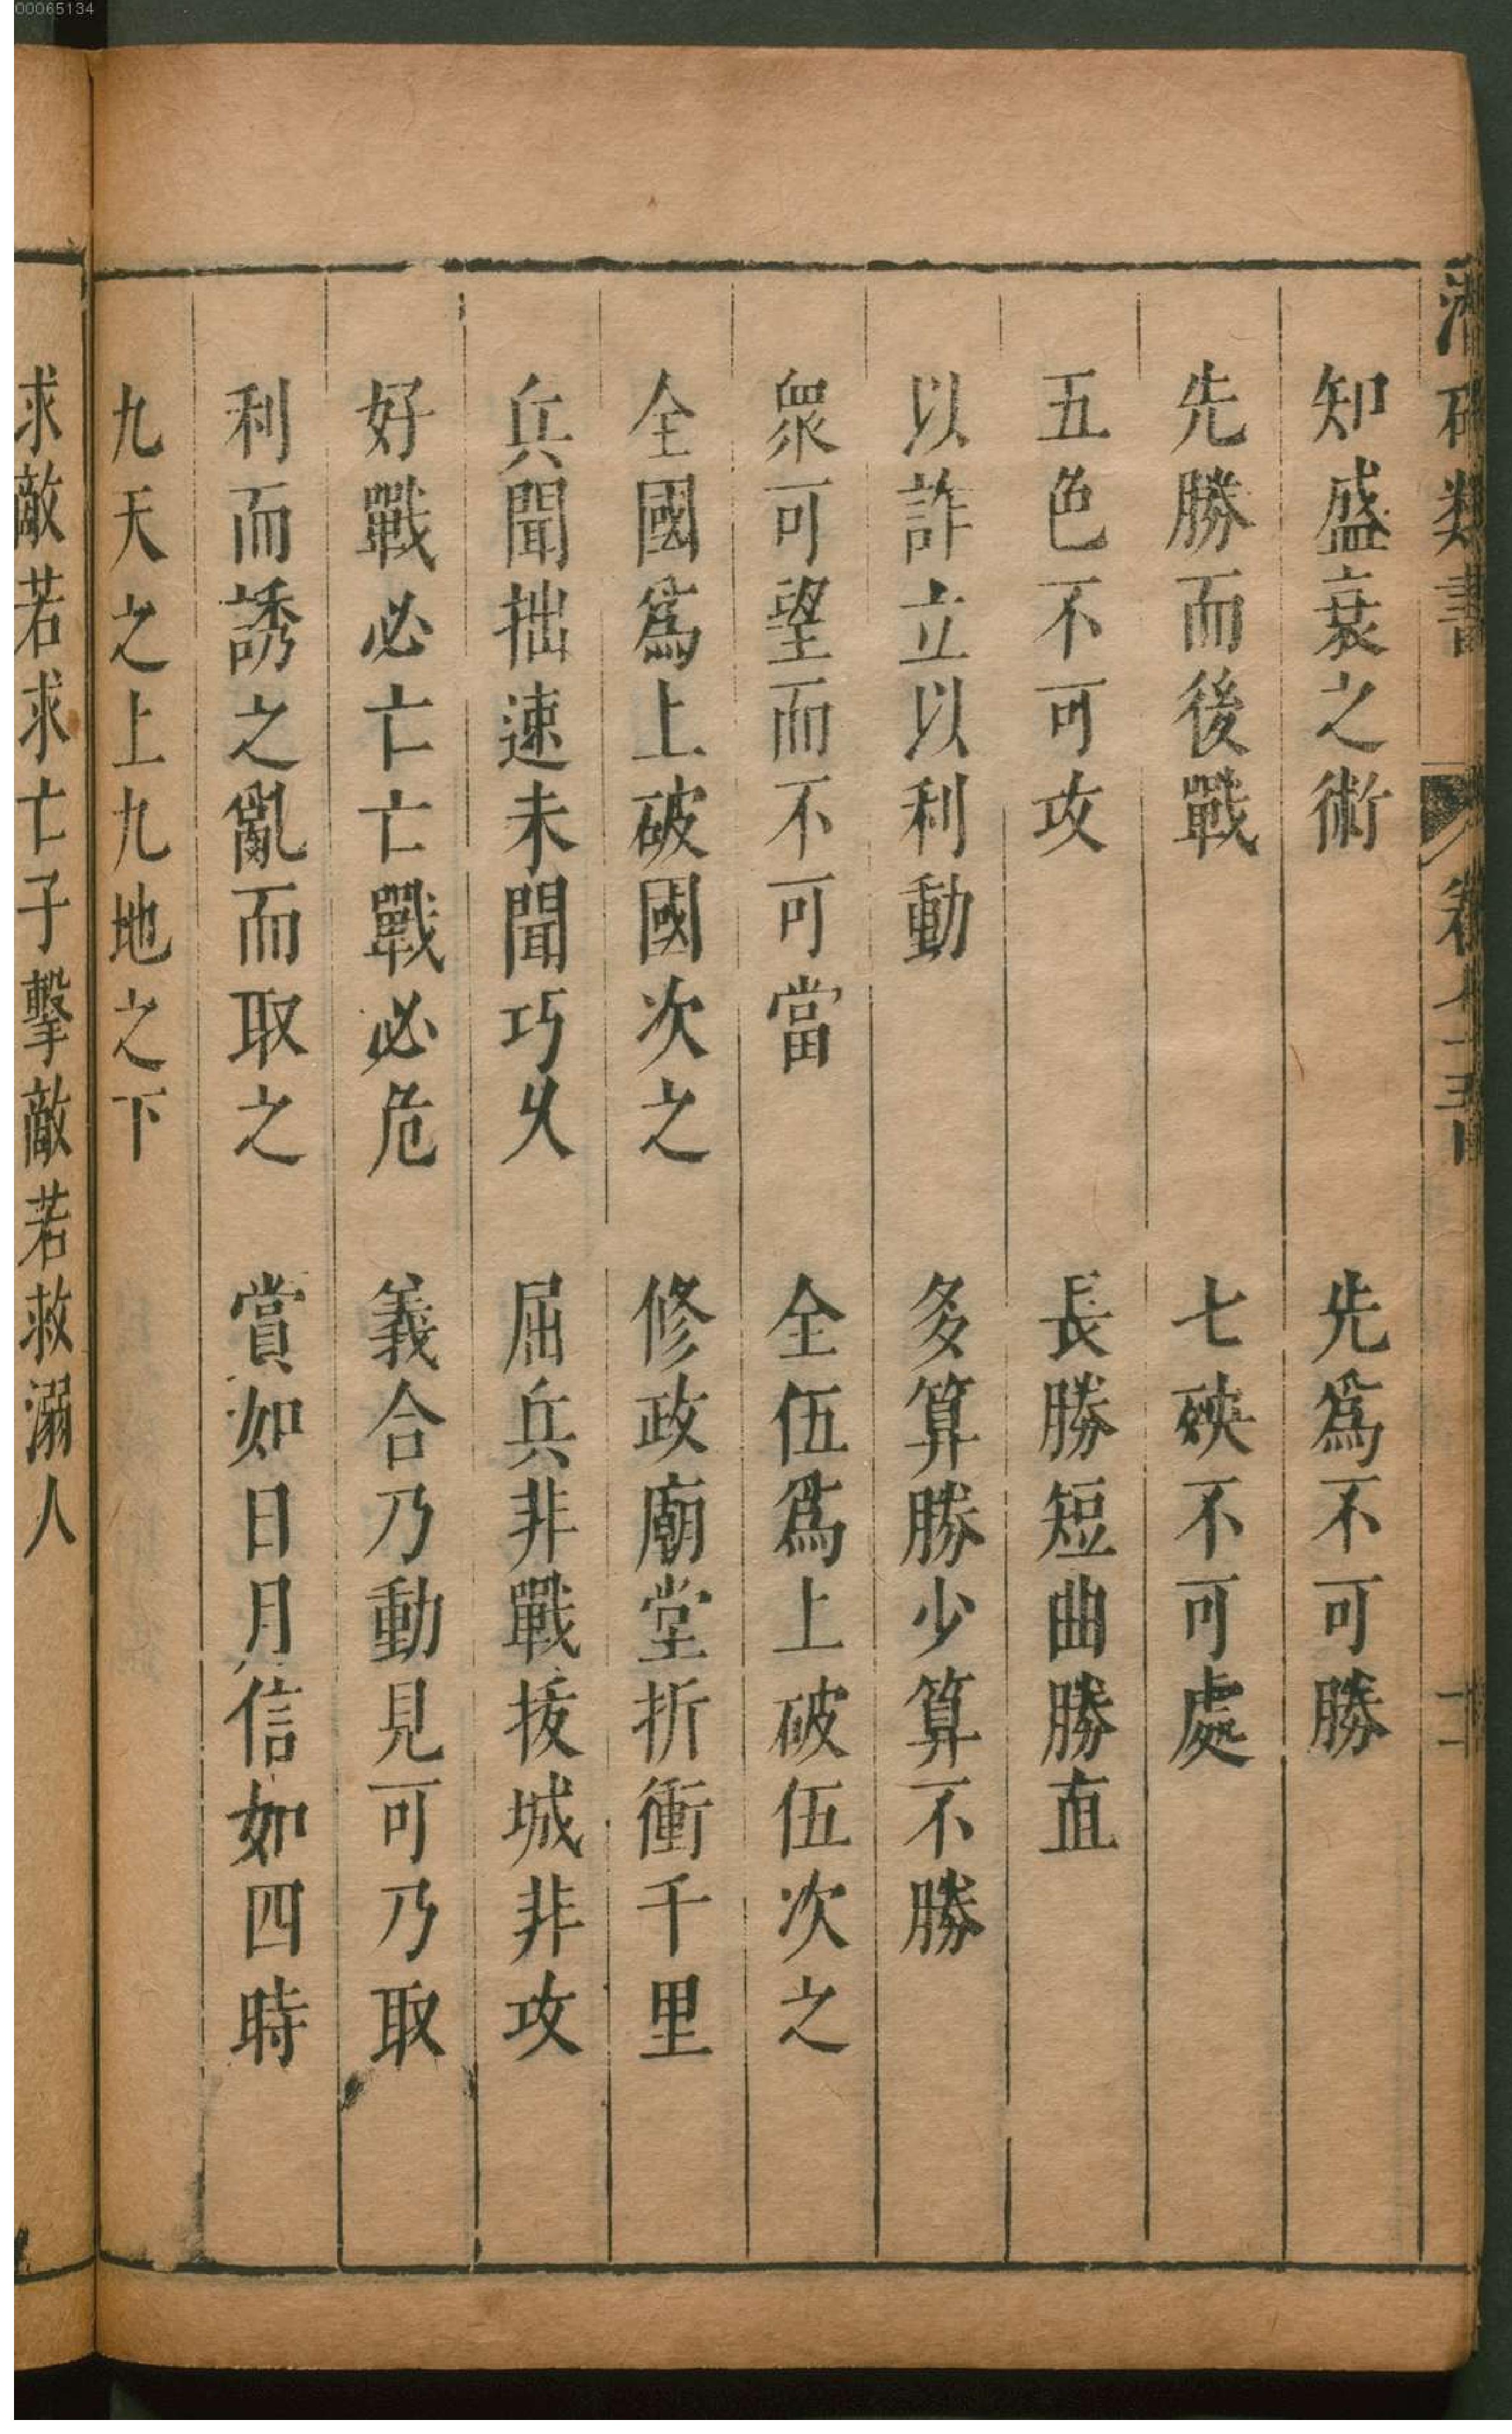 00065134
知盛衰之術　先爲不可勝
先勝而後戰　七殃不可處
五色不可攻　長勝短曲勝直
以詐立以利動　多算勝少算不勝
衆可望而不可當　全伍爲上破伍次之
全國爲上破國次之　修政廟堂折衝千里
兵聞拙速未聞巧久　屈兵非戰拔城非攻
好戰必亡亡戰必危　義合乃動見可乃取
利而誘之亂而取之　賞如日月信如四時
九天之上九地之下
求敵若求亡子擊敵若救溺人